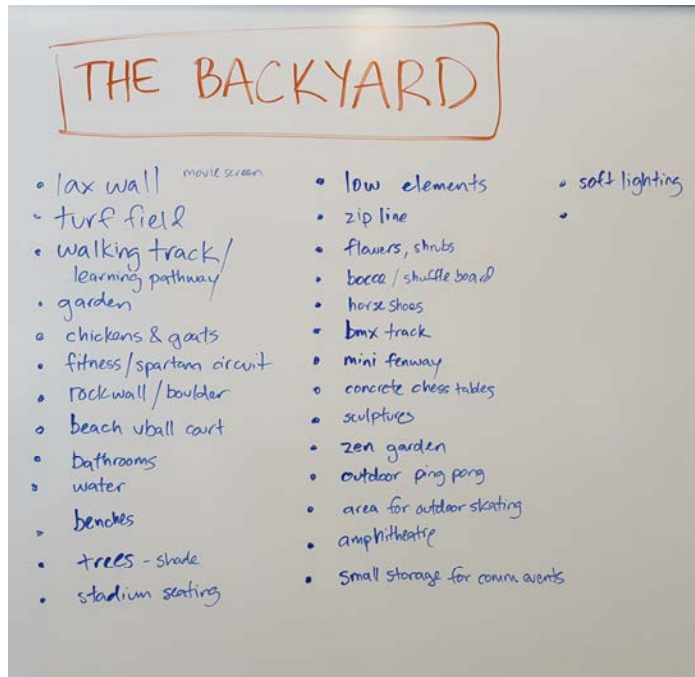 THE BACKYARD
• lax wall movie screen
• turf field
• walking track/
learning pathway
• garden
• chickens & goats
• fitness/spartan circuit
• rockwall/boulder
• beach vball court
• bathrooms
• water
• benches
• trees - shade
• stadium seating
• low elements
• zip line
• flowers, shrubs
• bocce/shuffle board
• horse shoes
• bmx track
• mini fenway
• concrete chess tables
• sculptures
• zen garden
• outdoor ping pong
• area for outdoor skating
• amphitheatre
• small storage for comm events
• soft lighting
•